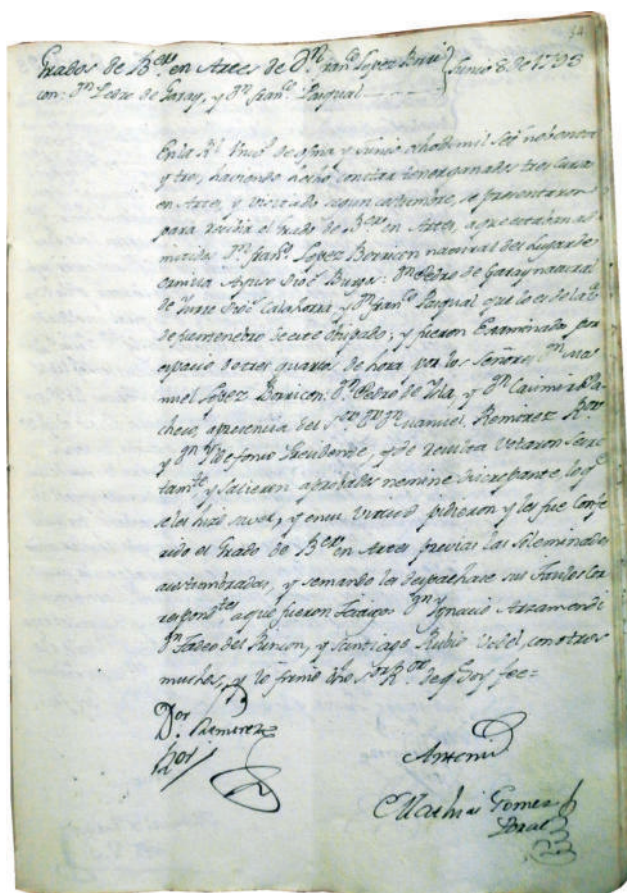 34
Grados de B.res en Artes de D.n Fran.co Lopez Borri } Junio 8. de 1793
con: D.n Pedro de Garay, y D.n Fran.co Pasqual
En la R.l Univ.d de Osma y Junio ocho de mil set.s nobenta
y tres, haviendo hecho constar tener ganados tres cursos
en Artes, y Visitado segun costumbre, se presentaron
para recibir el Grado de B.res en Artes, a que estaban ad
mitidos D.n Fran.co Lopez Borricon natural del Lugar de
Dioc. Burgos: D.n Pedro de Garay natural
de Dioc. Calahorra, y D.n Fran.co Pasqual que lo es de la V.a
de fuentenebro de este Obispado; y fueron Examinados por
espacio de tres quartos de hora por los Señores D.n Ma
nuel Lopez Borricon, D.n Pedro de Ysla, y D.n Casimiro Pa
checo, a presencia del S.or D.or D.n Manuel Remirez R.or
y D.n Yldefonso Presidente, y de resulta Votaron Secre
tam.te y salieron aprobados nemine discrepante, lo q.e
se les hizo saver, y en su Virtud pidieron y les fue Confe
rido el Grado de B.res en Artes previas las solemnidades
acostumbradas, y se mando les despachase sus Titulos Cor
respond.tes a que fueron Testigos D.n Ygnacio Arzamendi
D.n Tadeo del Rincon, y Santiago Rubio Vedel, con otros
muchos, y lo firmo dho S.or R.or de q.e doy fee=
D.or Remirez
R.or
Antemi
Mathias Gomez